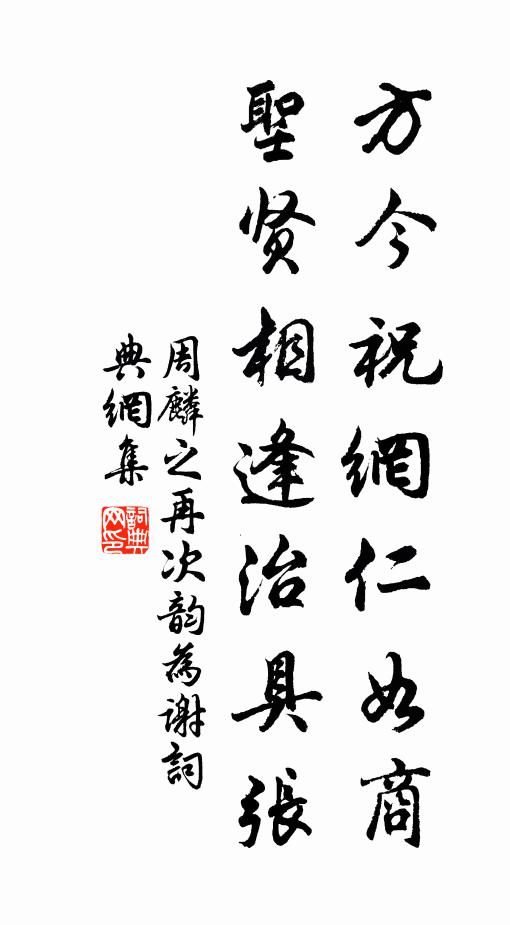 方今祝網仁如商
聖贤相逢治具張
周麟之再次韵為谢詞
典網集
詞典网印